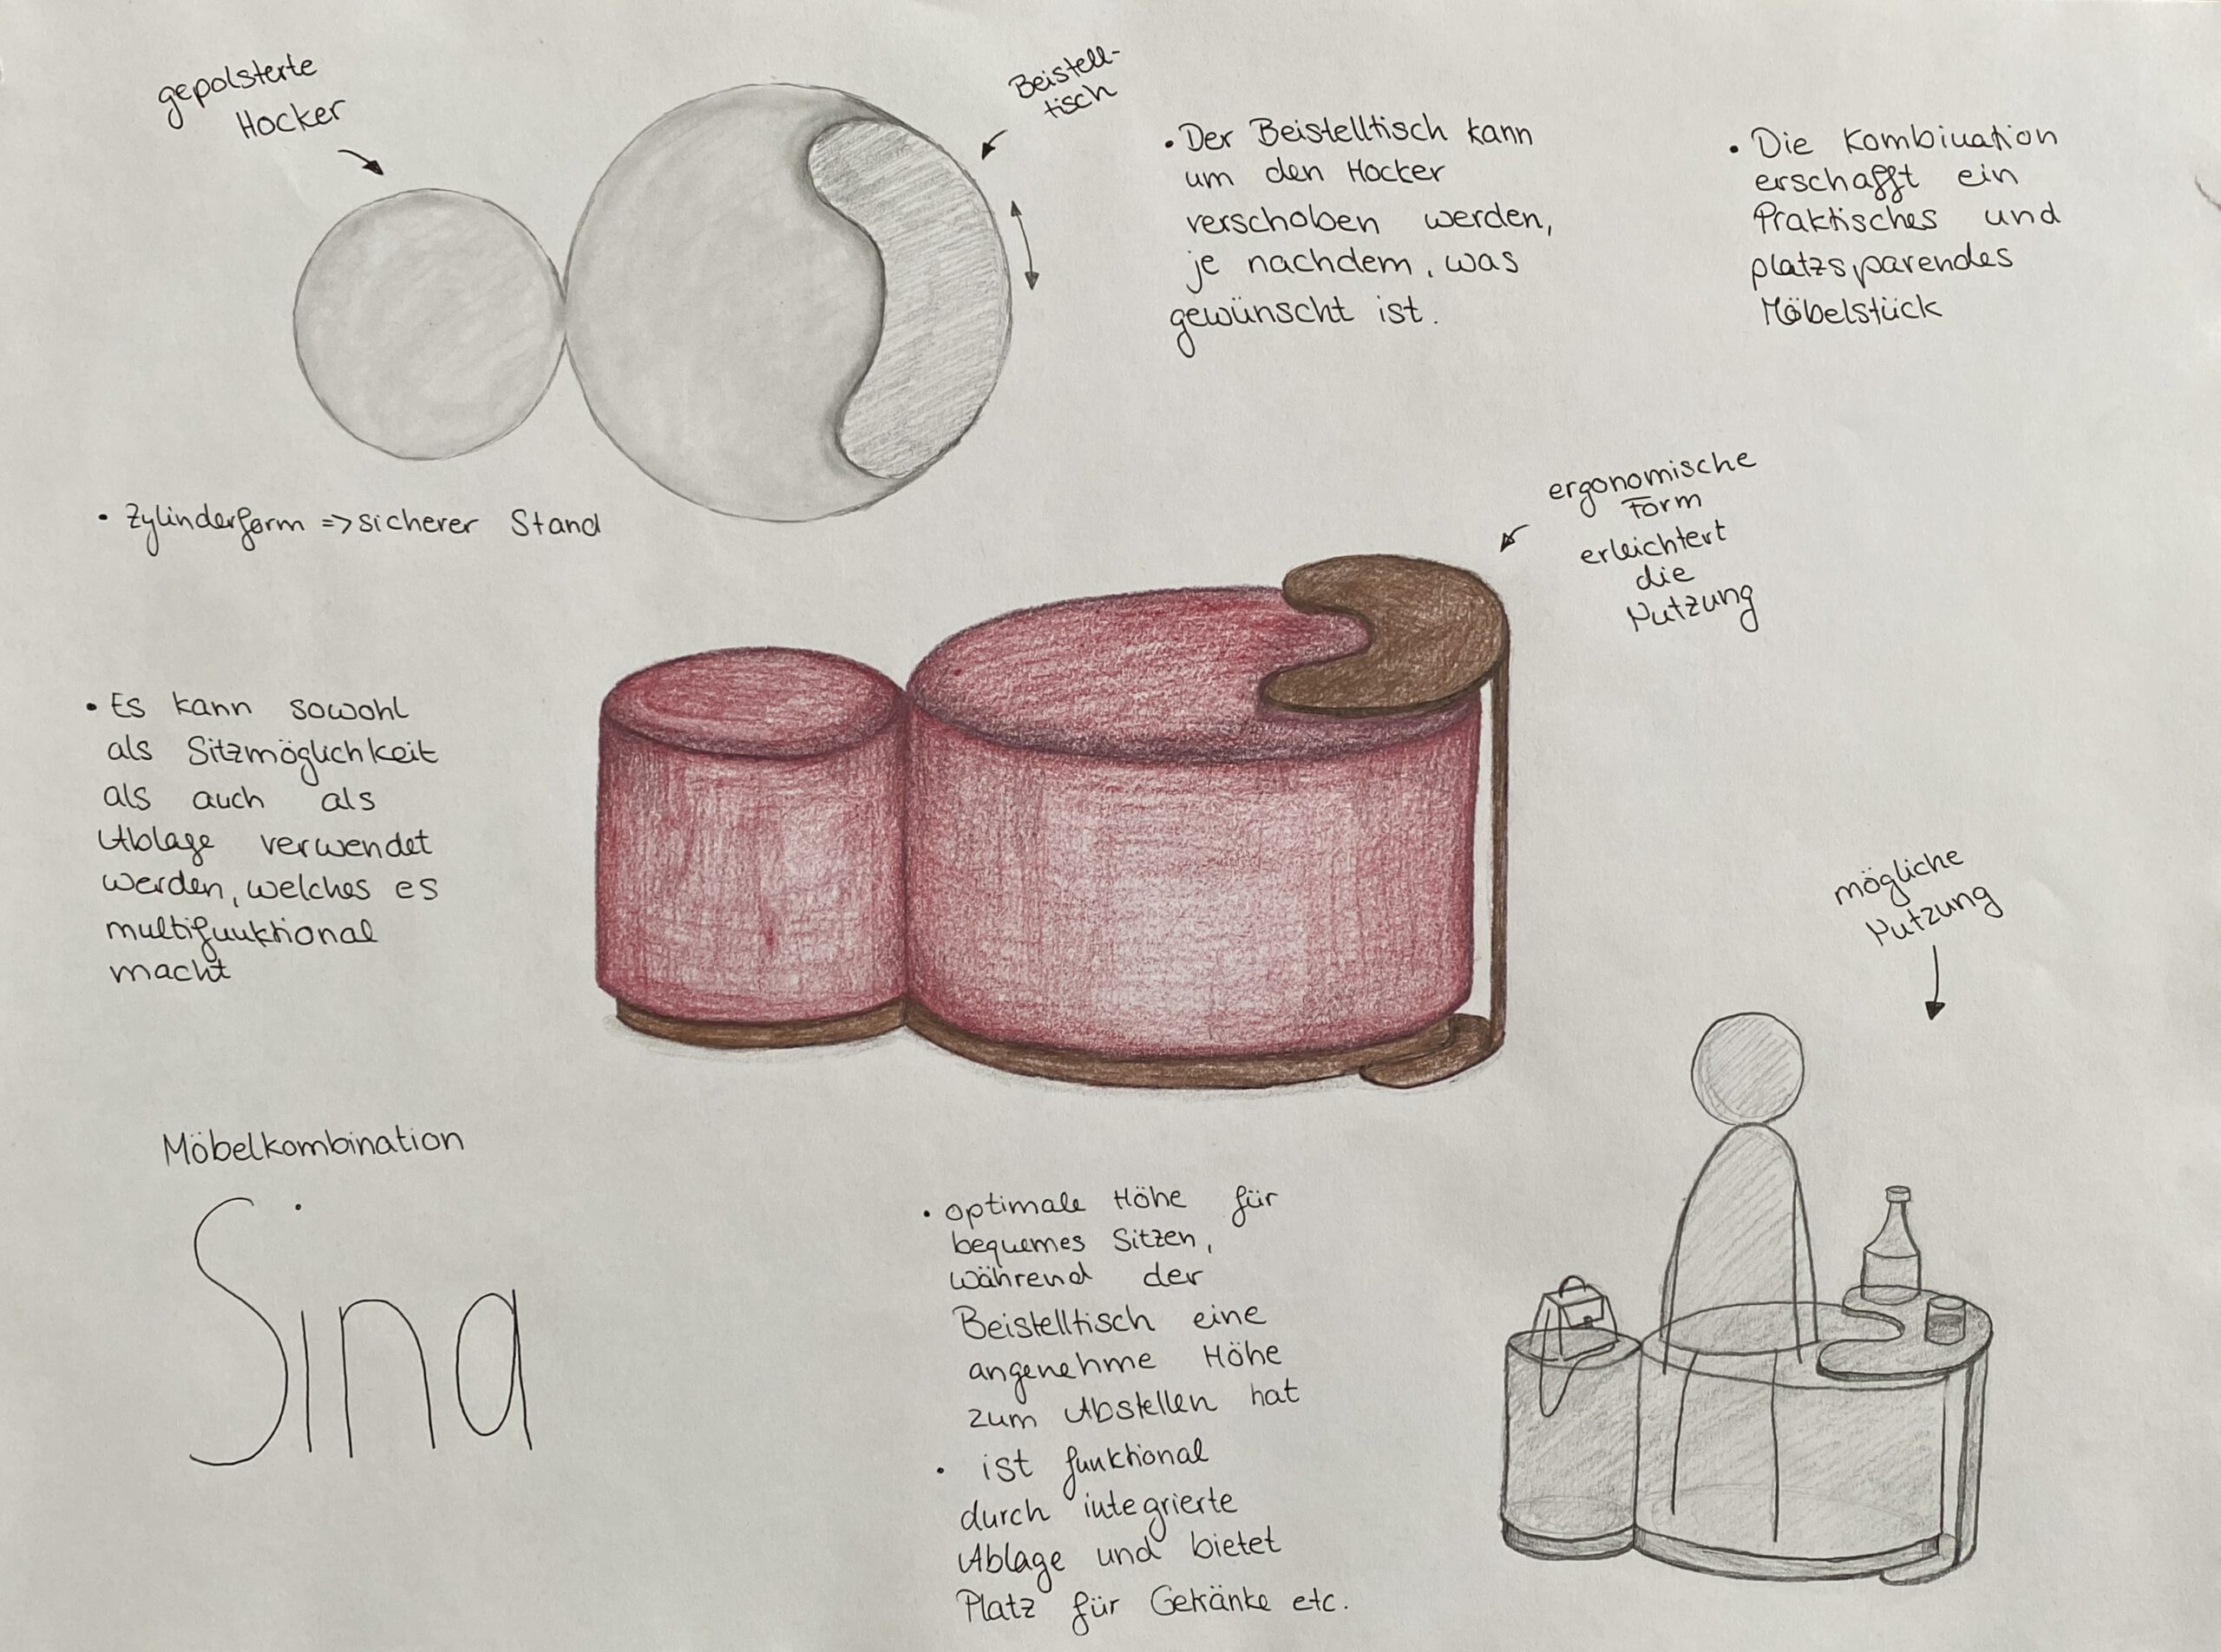 gepolsterte
Hocker
Beistell-
tisch
• Der Beistelltisch kann
um den Hocker
verschoben werden,
je nachdem, was
gewünscht ist.
• Die Kombination
erschafft ein
Praktisches und
platzsparendes
Möbelstück
• Zylinderform => sicherer Stand
ergonomische
Form
erleichtert
die
Nutzung
• Es kann sowohl
als Sitzmöglichkeit
als auch als
Ablage verwendet
werden, welches es
multifunktional
macht
mögliche
Nutzung
Möbelkombination
Sina
• optimale Höhe für
bequemes Sitzen,
während der
Beistelltisch eine
angenehme Höhe
zum Abstellen hat
• ist funktional
durch integrierte
Ablage und bietet
Platz für Getränke etc.